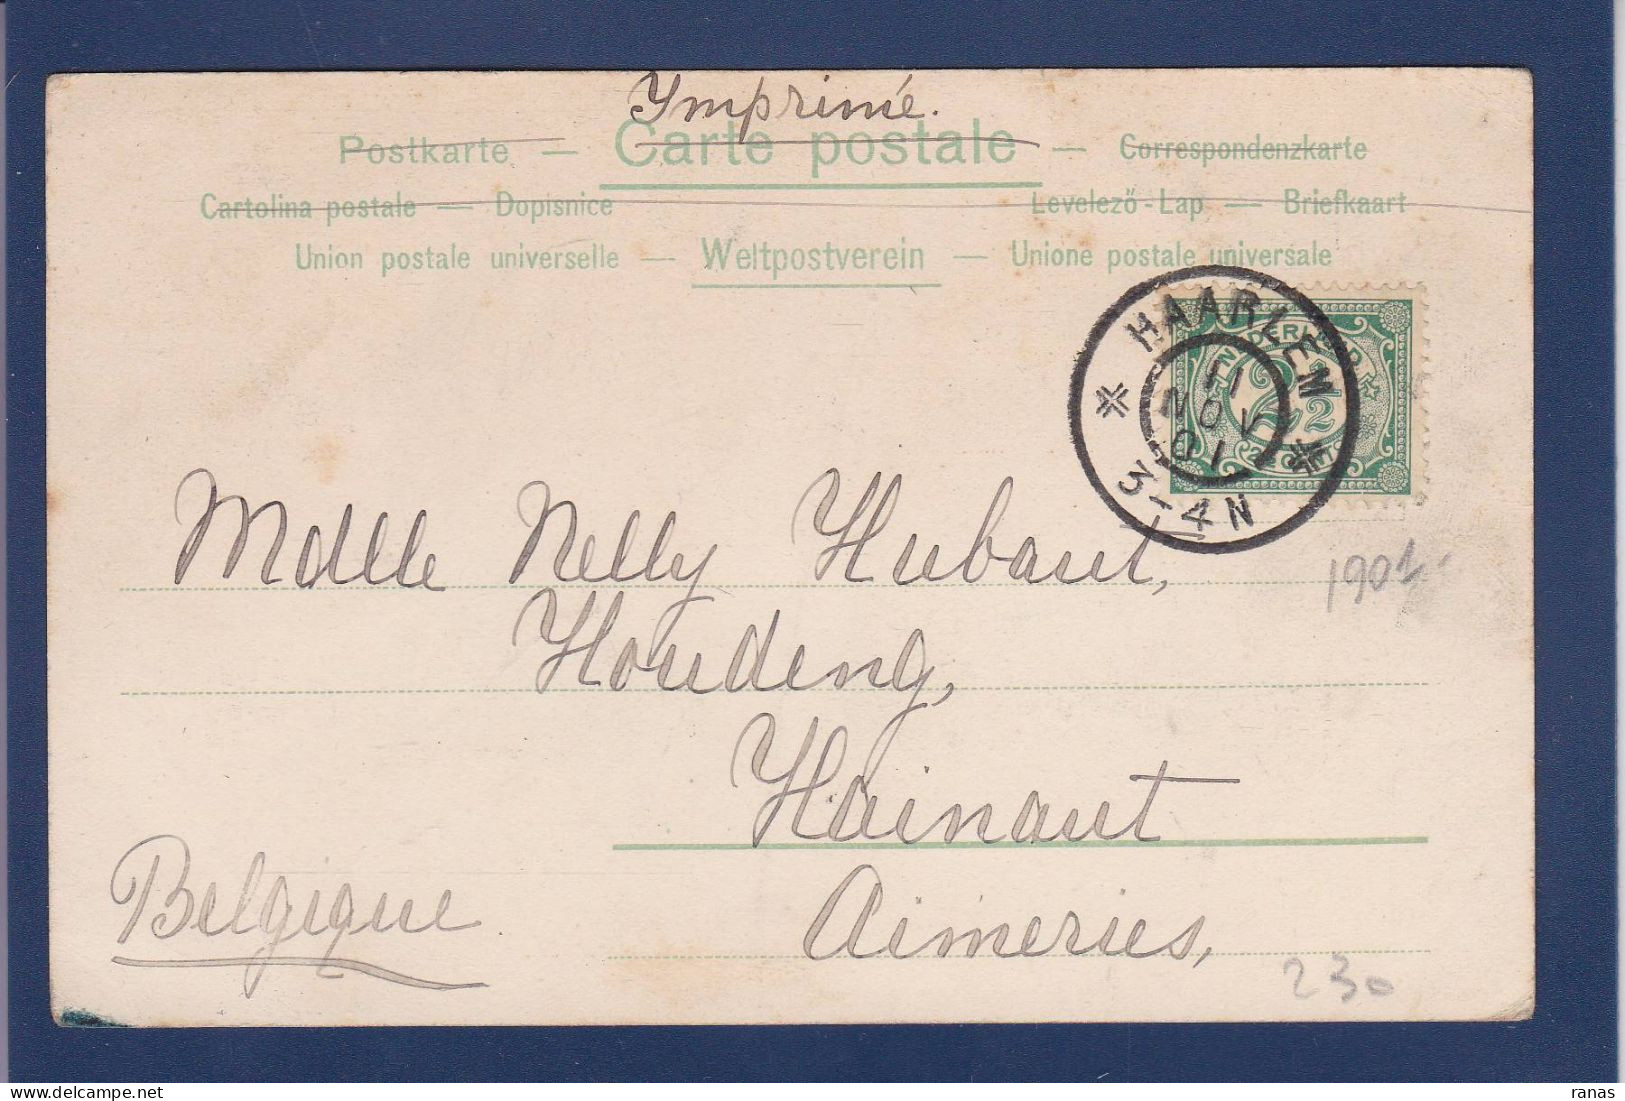 Imprimé.
Postkarte — Carte postale — Correspondenzkarte
Cartolina postale — Dopisnice Levelező-Lap — Briefkaart
Union postale universelle — Weltpostverein — Unione postale universale
HAARLEM
11
NOV
01
3-4N
NEDERLAND
2 1/2
1901
Mdlle Nelly Hubaut,
Houdeng,
Hainaut
Belgique
Aimeries,
230
ranas